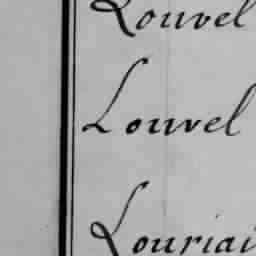 Louvel
Louvel
Louriai